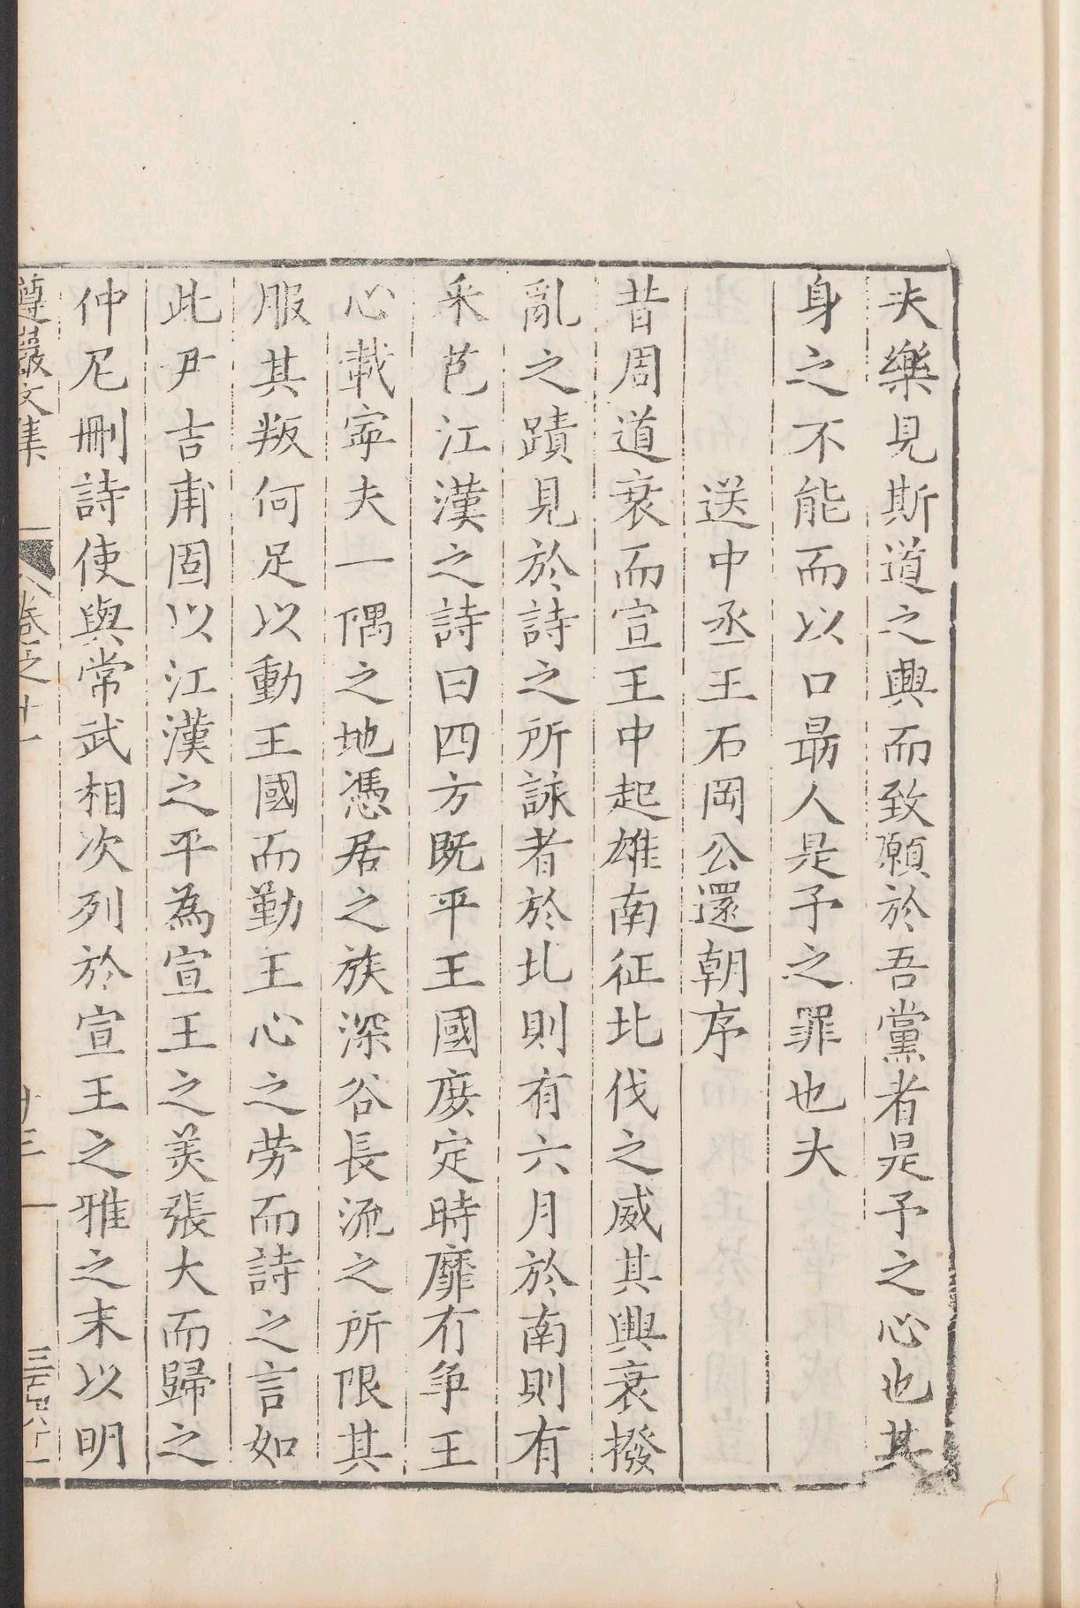 夫樂見斯道之興而致願於吾黨者是予之心也其
身之不能而以口勗人是予之罪也夫
送中丞王石岡公還朝序
昔周道衰而宣王中起雄南征北伐之威其興衰撥
亂之蹟見於詩之所詠者於北則有六月於南則有
采芑江漢之詩曰四方既平王國庻定時靡有爭王
心載寧夫一隅之地憑居之族深谷長流之所限其
服其叛何足以動王國而勤王心之劳而詩之言如
此尹吉甫固以江漢之平為宣王之美張大而歸之
仲尼刪詩使與常武相次列於宣王之雅之末以明
遵巖文集
卷之廿一
廿三